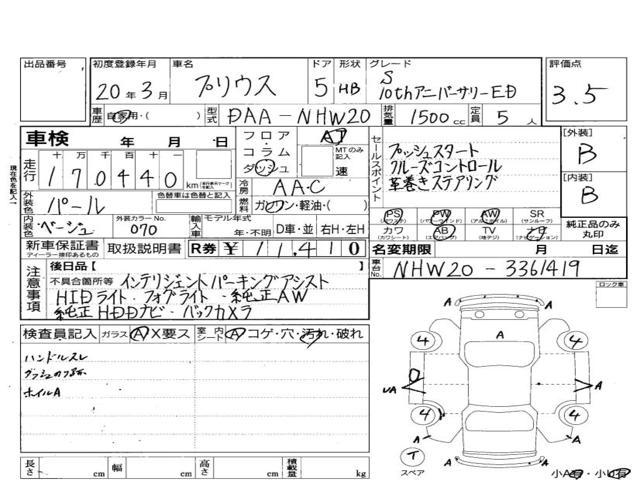 出品番号
初度登録年月
20年3月
車名
プリウス
ドア
5
形状
HB
グレード
S
10thアニバーサリーED
評価点
3.5
車歴
自家用・( )
型式
DAA-NHW20
排気量
1500cc
定員
5人
車検 年 月 日
走行
十 万 千 百 十 一
170440km
外装色
パール
色替車は色替と記入
内装色
ベージュ
外装カラーNo.
070
輸入車
モデル年式
年・不明
D車・並
右H・左H
フロア・コラム・ダッシュ
AT
MTのみ記入
速
冷房
AAC
燃料
ガソリン・軽油・( )
セールスポイント
プッシュスタート
クルーズコントロール
革巻きステアリング
PS
PW
AW
SR
(サンルーフ)
カワ
AB
TV
ナビ
(カワシート)
(エアバッグ)
(地デジ)
[外装]
B
[内装]
B
純正品のみ丸印
現在色を記入
新車保証書
ディーラー捺印あるもの
取扱説明書
R券
¥11,410
名変期限 月 日迄
車台No.
NHW20-3361419
注意事項
後日品[ ]
不具合箇所等
インテリジェントパーキングアシスト
HIDライト・フォグライト・純正AW
純正HDDナビ・バックカメラ
ロック車
検査員記入
ガラス A X要ス
室内シート A コゲ・穴・汚れ・破れ
ハンドルスレ
ホイルA
A
A
A
4
4
A
UA
A
4
4
A
A
A
A
T
スペア
長さ cm
幅 cm
高さ cm
積載量 kg
小A有・小U有